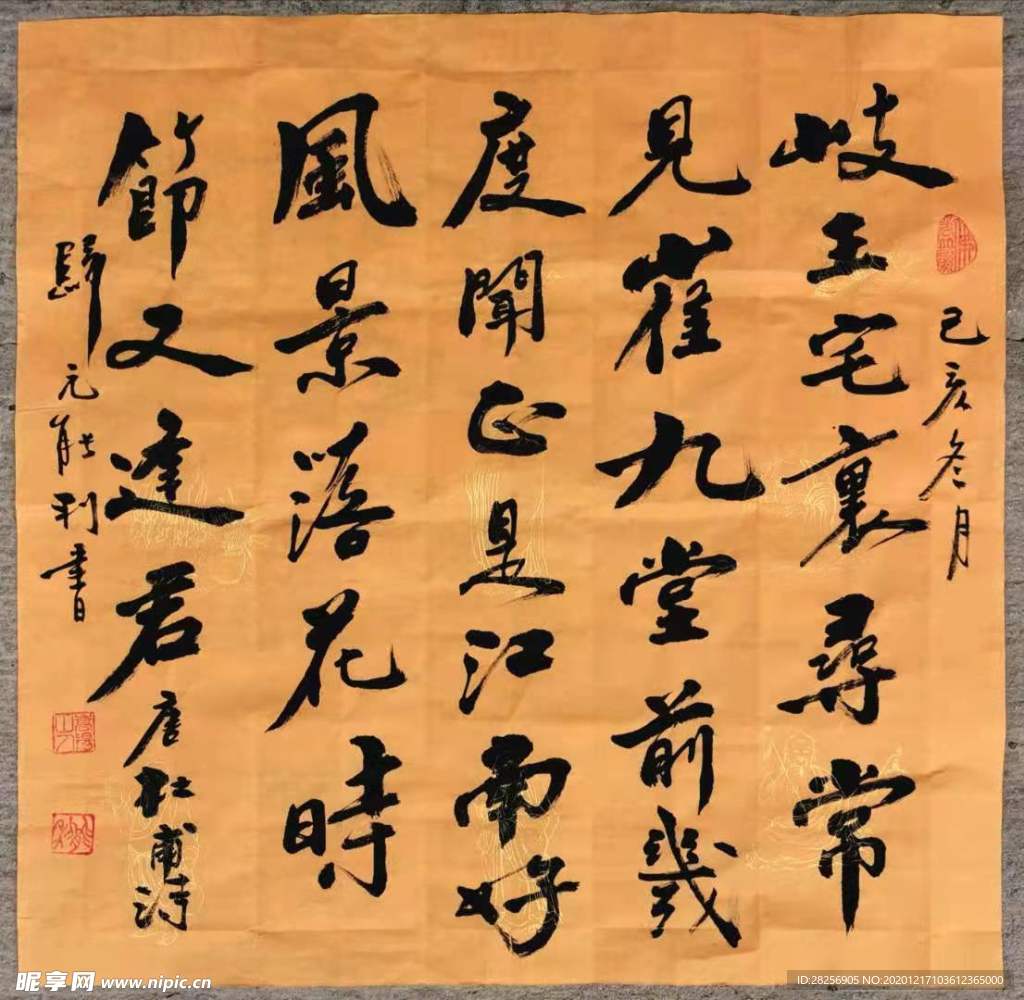 己亥冬月
岐王宅裏尋常
見崔九堂前幾
度聞正是江南好
風景落花時
節又逢君唐杜甫詩
歸元能利書
昵享网 www.nipic.cn
ID:28256905 NO:20201217103612365000